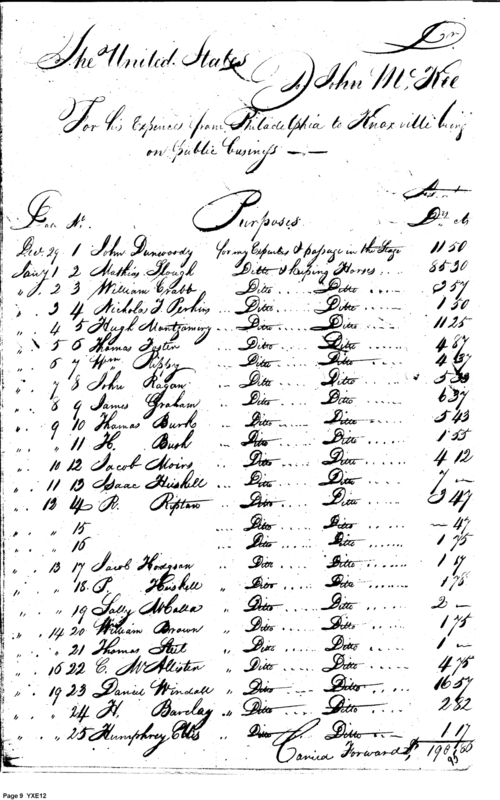 The United States Dr
To John McKee
For his Expences from Philadelphia to Knoxville being
on public business —
No. Purposes Ds. Cts
Decr. 29 1 John Dunwoody for my Expences & passage in the Stage 11 50
Jany 1 2 Mathias Slough Ditto & keeping Horses .. 85 30
" . 2 3 William Crabb Ditto Ditto 3 57
" . 3 4 Nichola J. Perkins Ditto Ditto 1 50
" . 4 5 Hugh Montgomery Ditto Ditto 11 25
" . 5 6 Thomas Foster Ditto Ditto 4 87
" . 6 7 Wm. Ditto Ditto 4 37
" . 7 8 John Ragan Ditto Ditto 5
" . 8 9 James Graham Ditto Ditto 6 37
" . 9 10 Thomas Bush Ditto Ditto 5 43
" . " 11 H. Bush Ditto Ditto 1 55
" . 10 12 Jacob Moirs Ditto Ditto 4 12
" . 11 13 Isaac Huskell Ditto Ditto 7 —
" . 12 14 R. Ditto Ditto 3 47
" . " 15 Ditto Ditto — 47
" . " 16 Ditto Ditto 1 75
" . 13 17 Jacob Hodgson Ditto Ditto 1
" . " 18 P. Huskell Ditto Ditto 1 75
" . " 19 Sally McCalla Ditto Ditto 2 —
" . 14 20 William Brown " Ditto Ditto 1 75
" . " 21 Thomas Steel " Ditto Ditto 1 —
" . 16 22 C. McAllister " Ditto Ditto 4 75
" . 19 23 Daniel Windall " Ditto Ditto 16 57
" . " 24 H. Barclay " Ditto Ditto 2 82
" . " 25 Humphrey Ellis " Ditto Ditto 1 17
Carried Forward $ 198
Page 9 YXE12